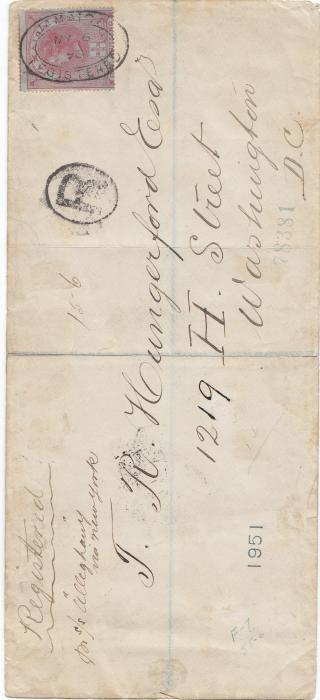 REGISTERED
R
Registered
pr s/s Alleghany
via New York
15-6
T. R. Hungerford Esqr
1219 H. Street
Washington
D.C.
78381
1951